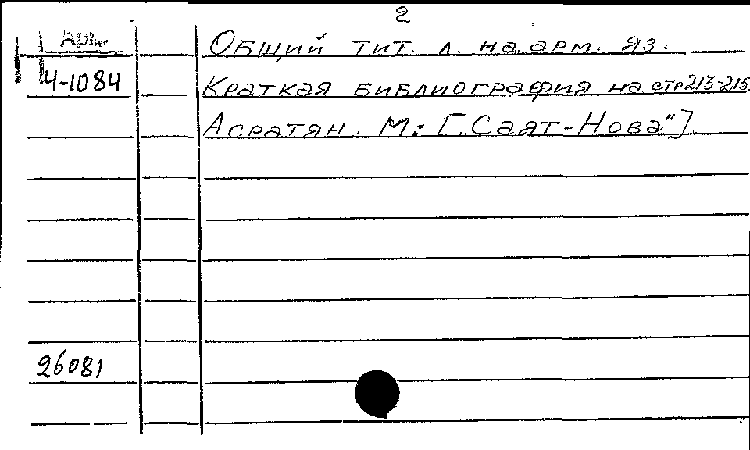 2
Арм.
Общий тит. л. на арм. яз.
4-1084
Краткая библиография на стр 213-215
Асратян. М: [„Саят-Нова"].
26081